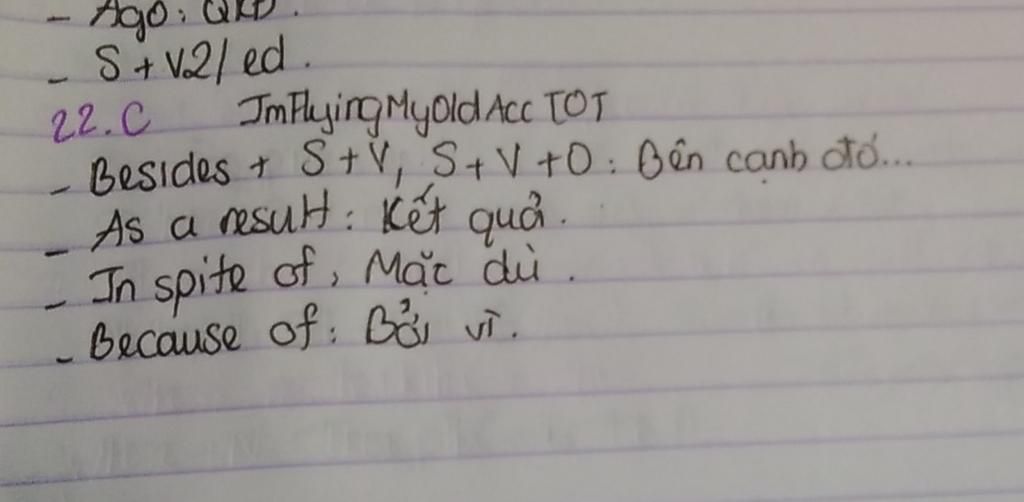 - Ago: QKĐ.
- S + V2/ed.
22.C ImFlyingMyOldAcc TOT
- Besides + S + V, S + V + O: Bên cạnh đó...
- As a result: Kết quả.
- In spite of, Mặc dù.
- Because of: Bởi vì.